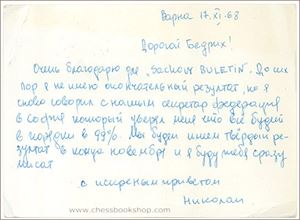 Варна 17.XI.68
Дорогой Бедрих!
Очень благодарю для "ŠACHOVY BULETIN". До сих
пор я не имею окончательный результат, но я
снова говорил с нашим секретар федерация
в София который уверял меня что все будет
в порядки в 99%. Мы будем имет твёрдой ре-
зультат в конца новембру и я буду тебя сразу
писат
с искреным приветом
Николай
www.chessbookshop.com